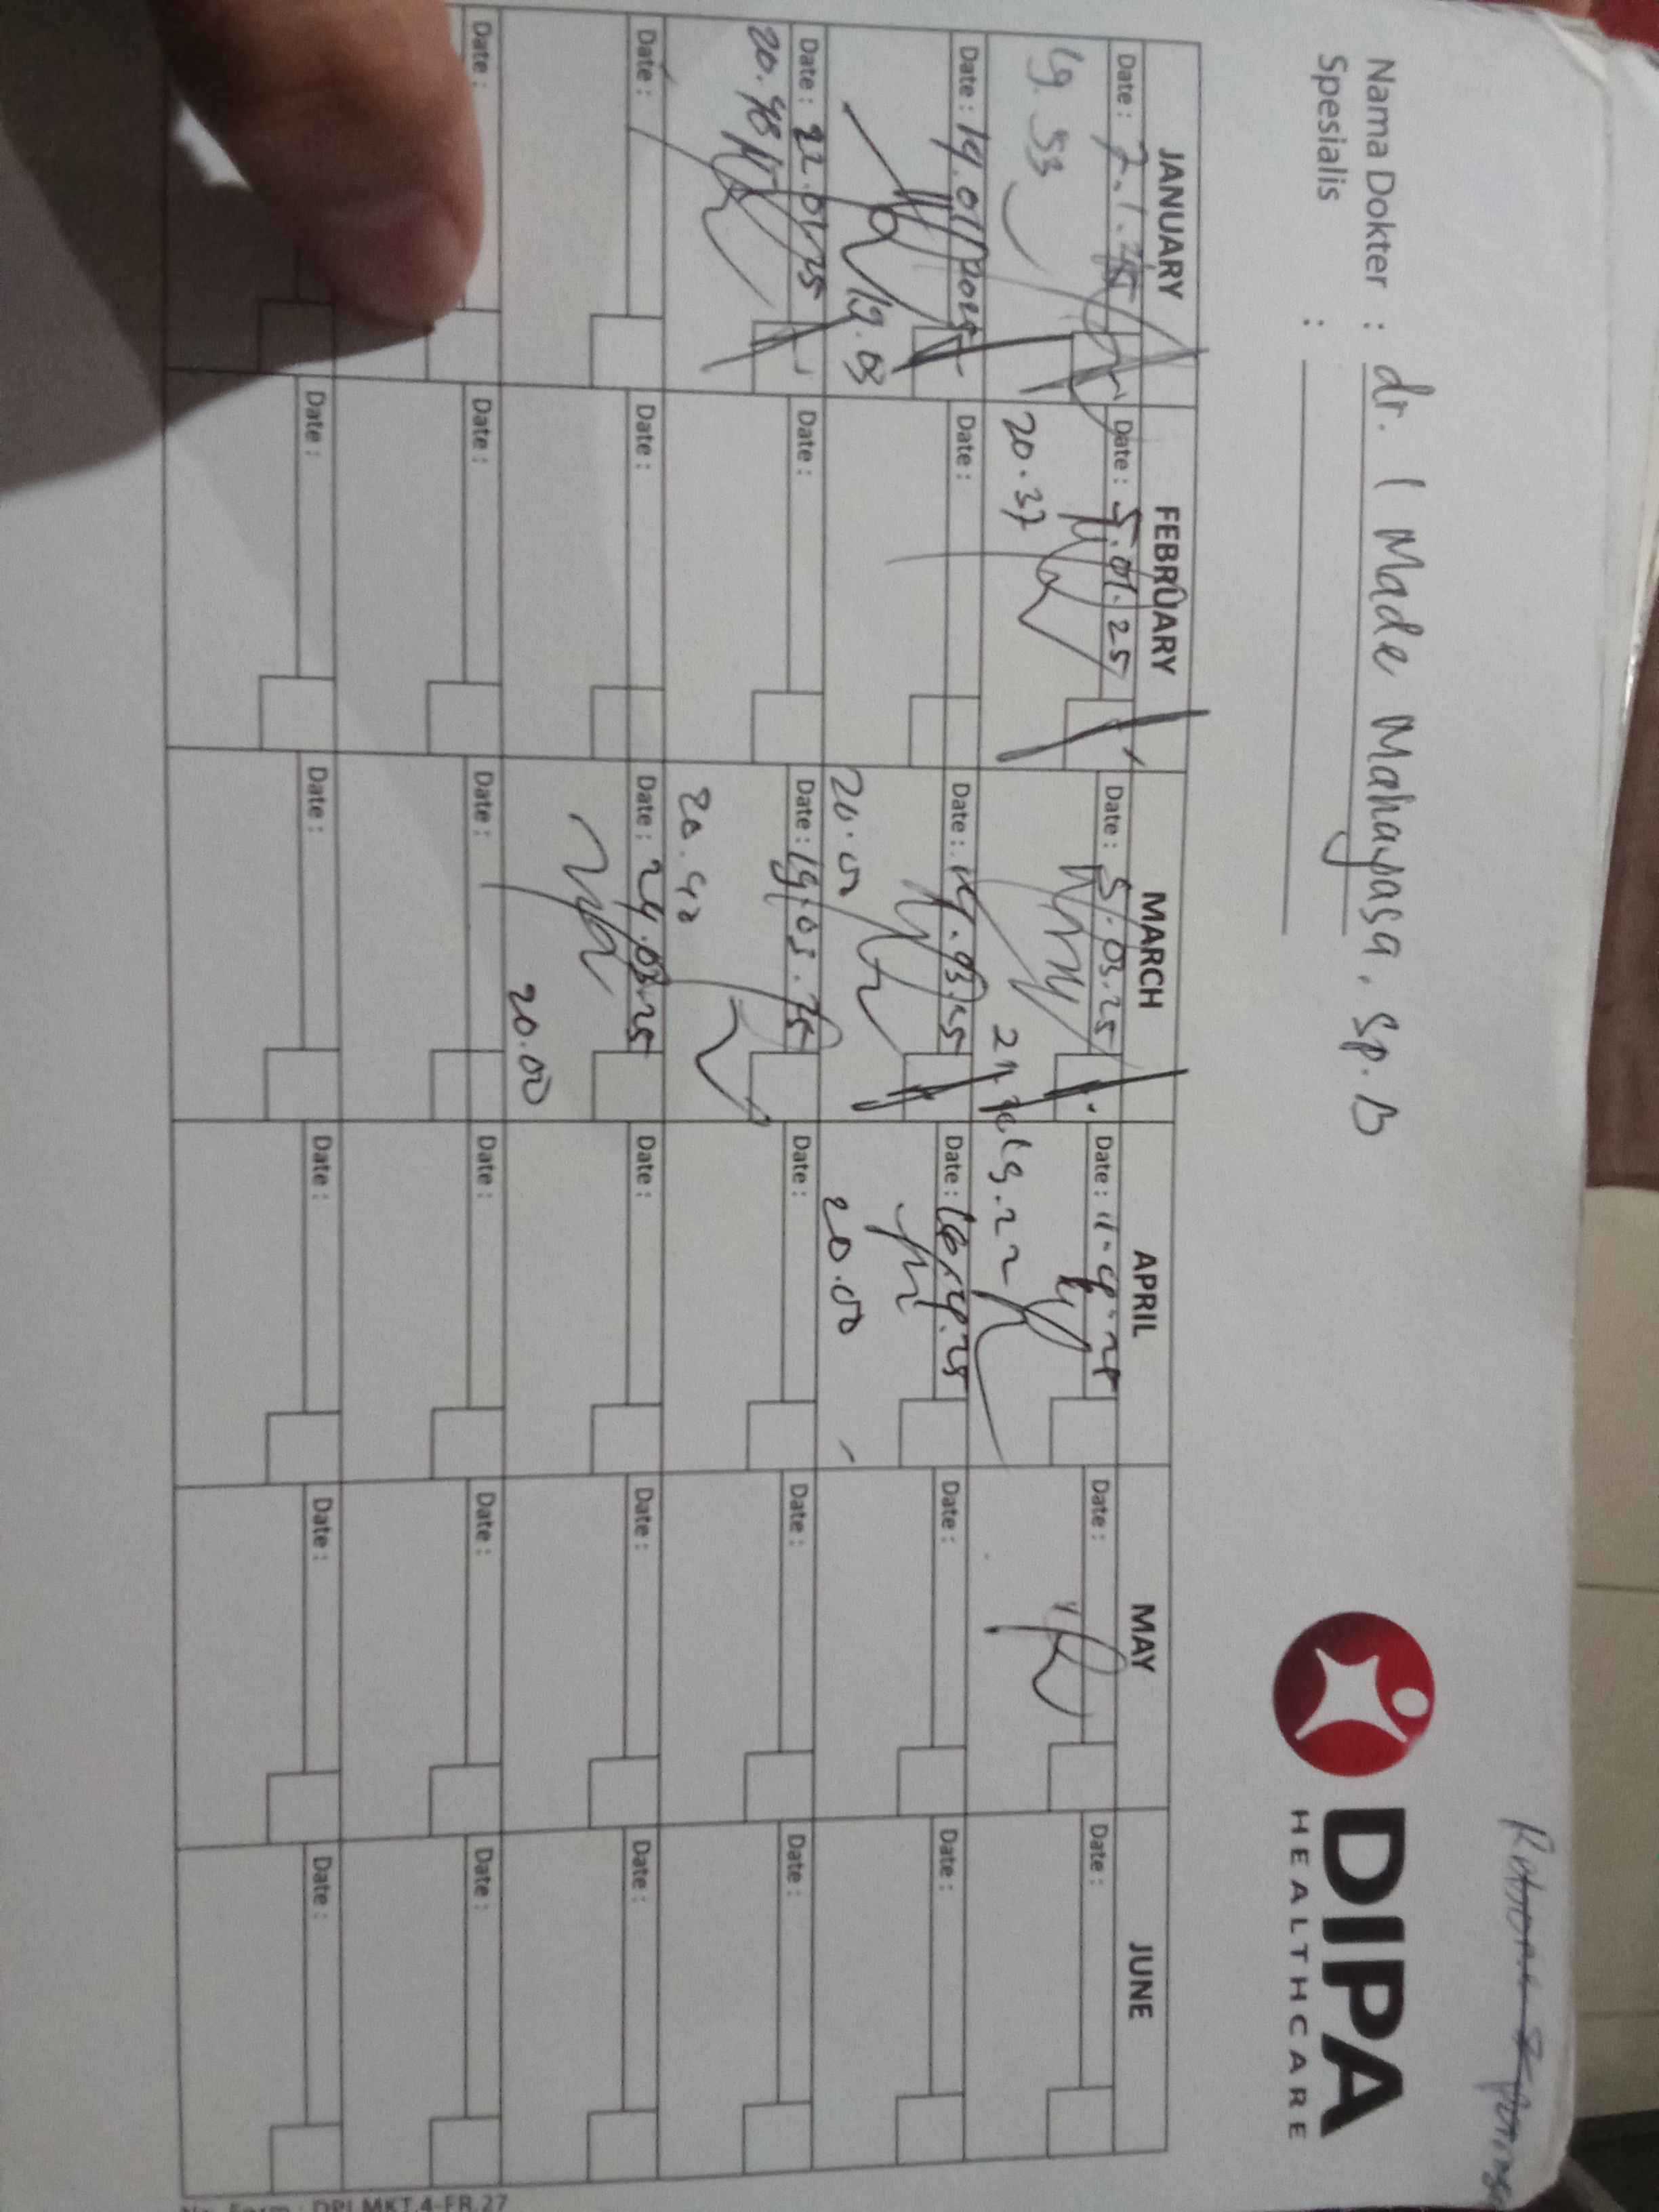 Nama Dokter : dr. I Made Mahayasa. Sp. B
Spesialis :
DIPA
HEALTHCARE
JANUARY FEBRUARY MARCH APRIL MAY JUNE
Date : 7.1.25 Date : 5.01.25 Date : 5.03.25 Date : 11-4-25 Date : Date :
19.53 20.37 19.22
Date : 14.01/2025 Date : Date : 14.03.25 Date : 16.4.25 Date : Date :
19.03 20.00 20.00
Date : 22.01.25 Date : Date : 19.03.25 Date : Date : Date :
20.48 20.40
Date : Date : Date : 24.03.25 Date : Date : Date :
20.00
Date : Date : Date : Date : Date : Date :
Date : Date : Date : Date : Date :
No. Form : DPI.MKT.4-FR.27